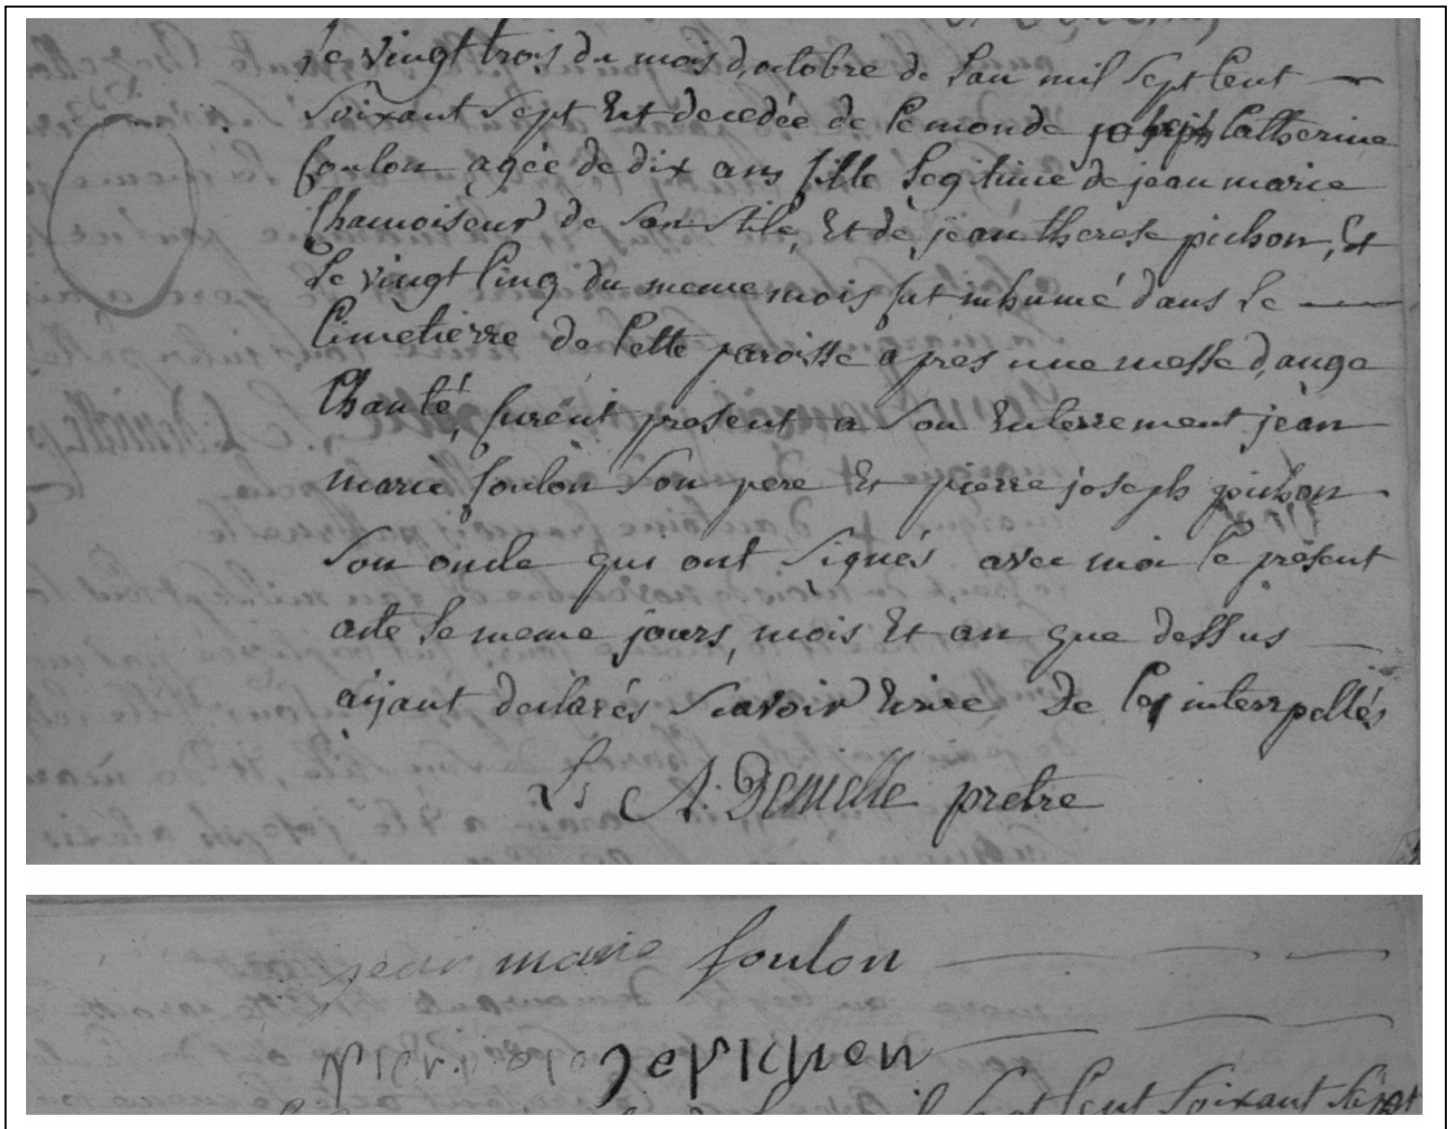 le vingt trois du mois d,octobre de l'an mil sept Cent
soixant sept Est decedée de Ce monde joseph Catherine
foulon agée de dix ans fille legitime de jean marie
Chamoiseur de son stile, Et de jean therese pichon, Et
le vingt Cinq du meme mois fut inhumé dans le
Cimetierre de Cette paroisse apres une messe d,ange
Chanté, furent present a son Enterrement jean
marie foulon son pere Et pierre joseph pichon
son oncle qui ont signés avec moi Ce présent
acte le meme jours, mois Et an que dessus
aijant declarés scavoir Ecrire de Ce interpellés
A. Denielle pretre
jean marie foulon
pichon
Cent soixant sept